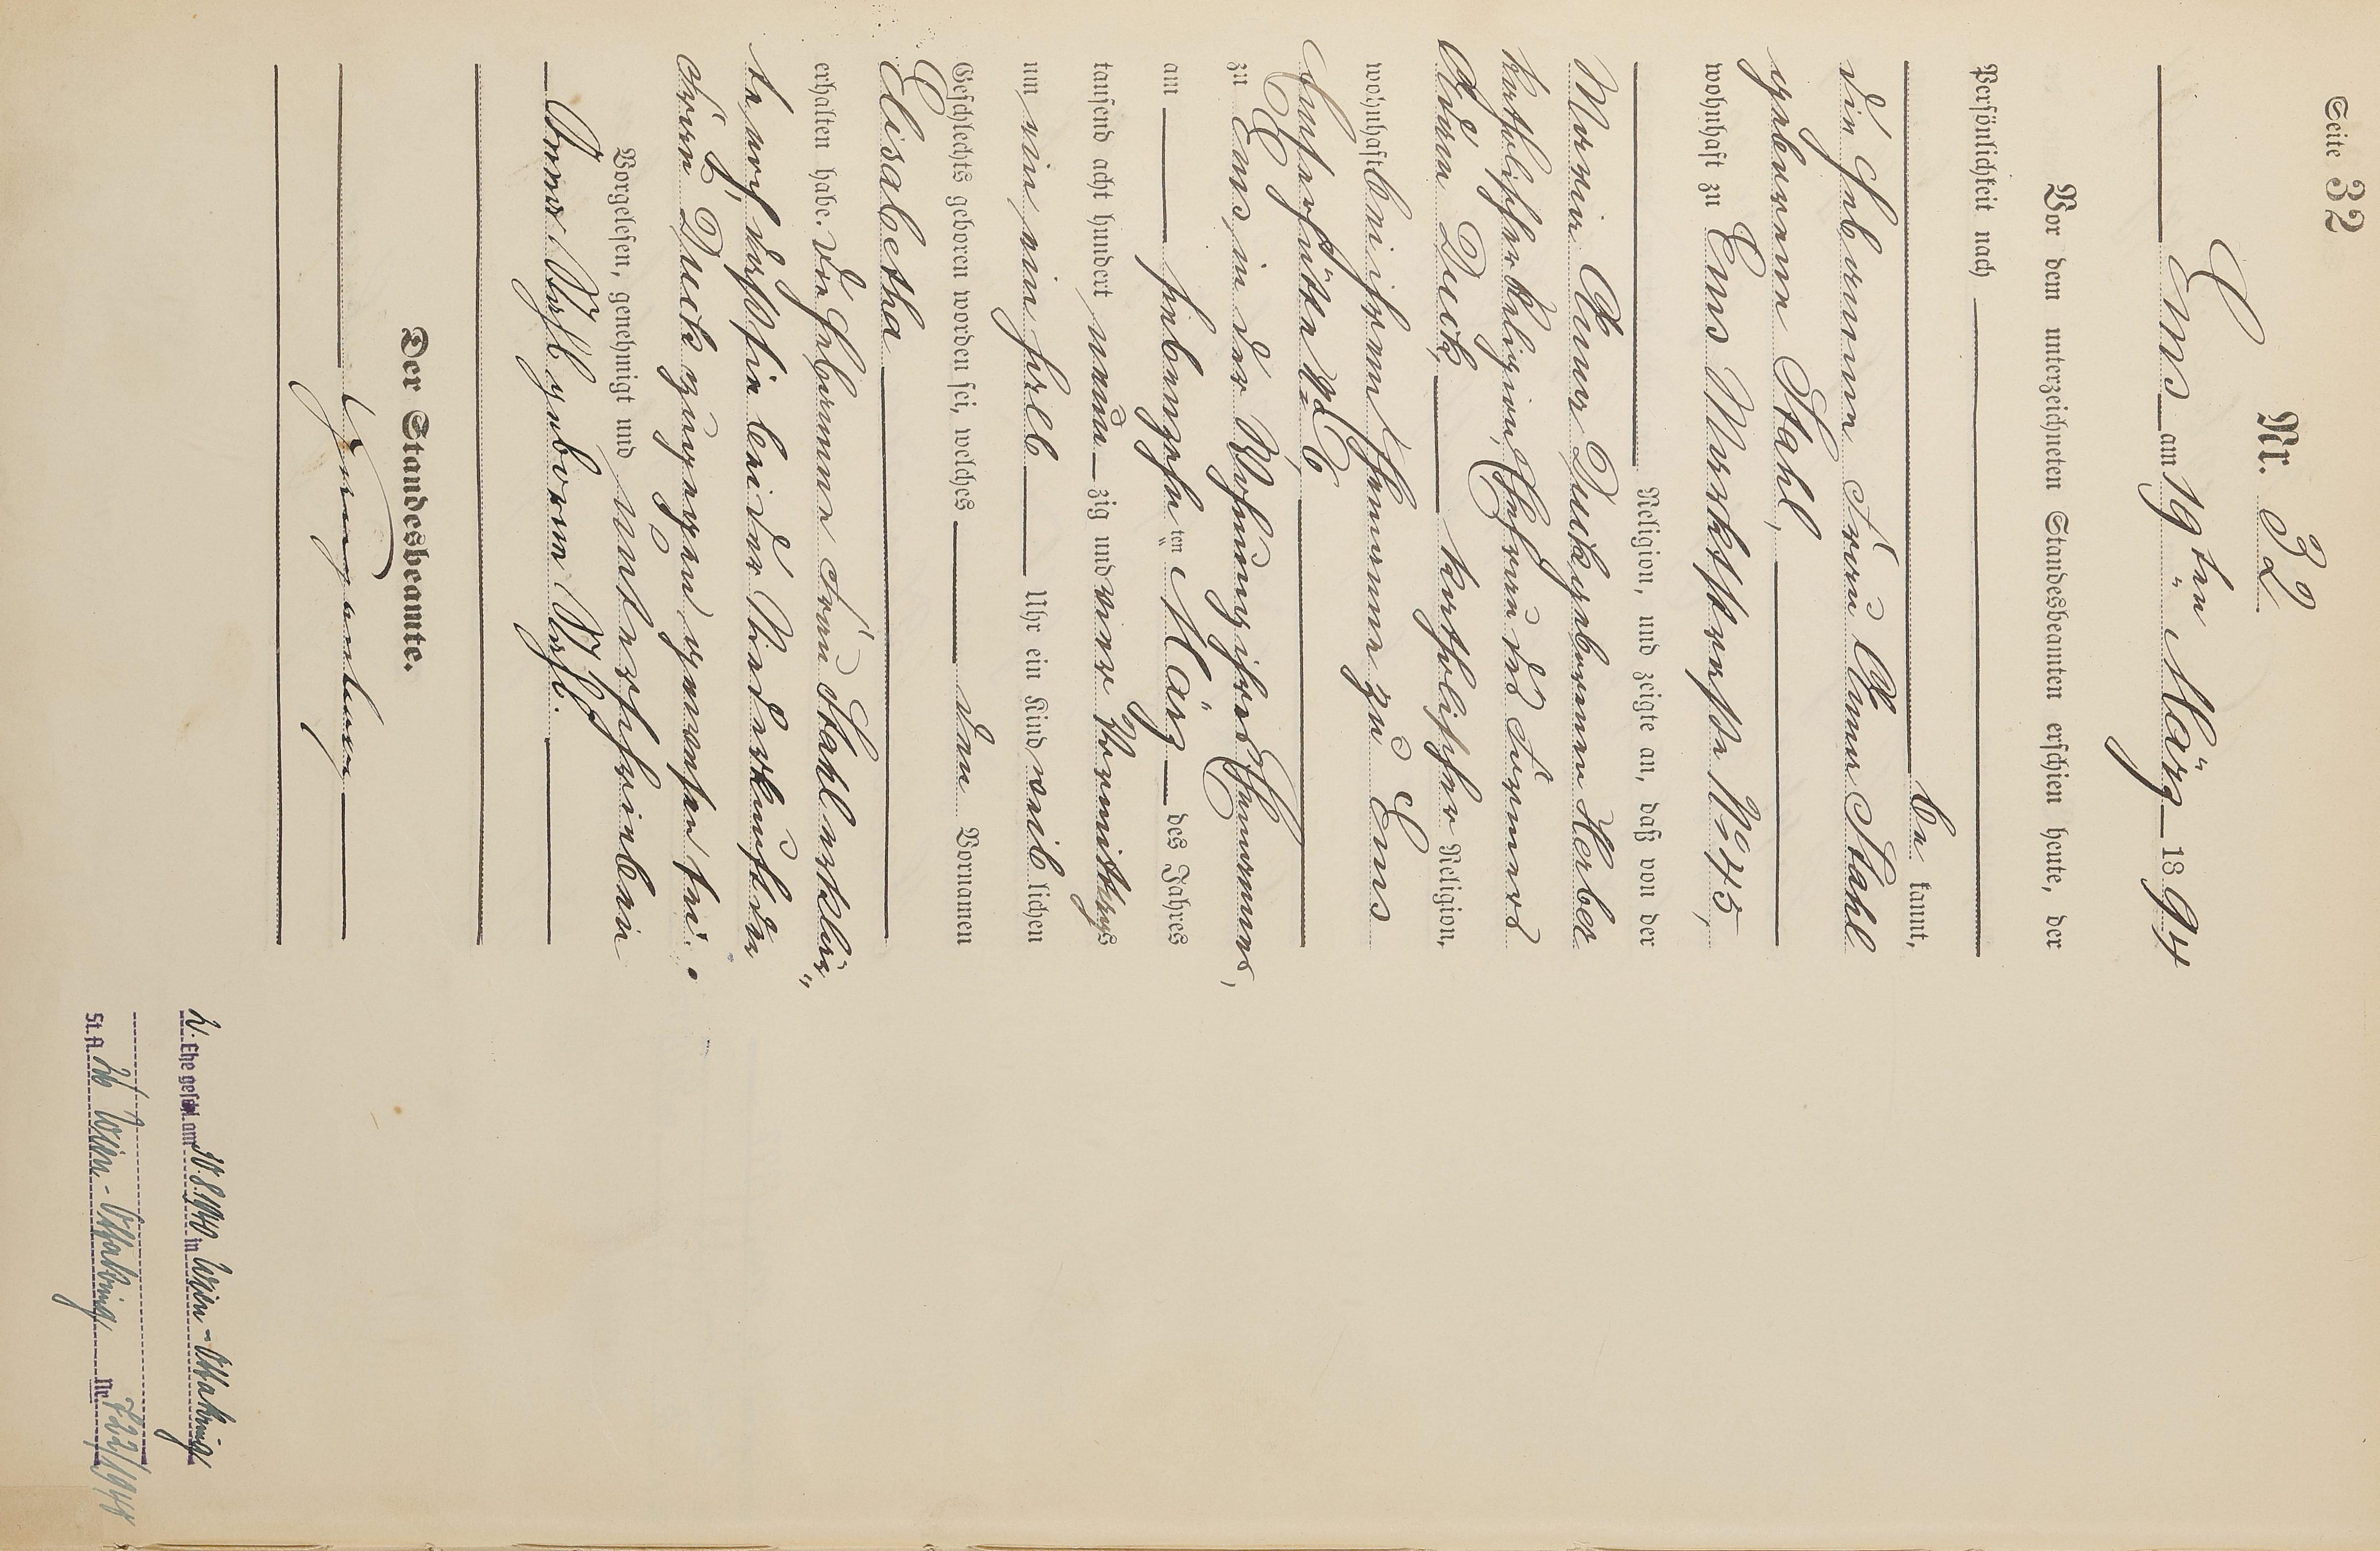 Seite 32
Nr. 32
Ems am 19ten März 1894
Vor dem unterzeichneten Standesbeamten erschien heute, der
Persönlichkeit nach
be kannt,
die Hebamme Frau Anna Stahl
geborene Stahl,
wohnhaft zu Ems Marktstraße No 45,
Religion, und zeigte an, daß von der
Maria Anna Duck geborene Herbel
katholischer Religion, Ehefrau des
Adam Duck, katholischer Religion,
wohnhaft bei ihrem Ehemanne zu Ems
zu Ems in der Wohnung ihres Ehemannes,
am siebenzehn ten März des Jahres
tausend acht hundert neun zig und vier Vormittags
um ein ein halb Uhr ein Kind weib lichen
Geschlechts geboren worden sei, welches den Vornamen
Elisabetha
erhalten habe. Die Hebamme Frau Stahl erklär„
te noch, daß sie bei der Niederkunft der
Frau Duck zugegen gewesen sei.
Vorgelesen, genehmigt und unterschrieben
Anna Stahl geborne Stahl.
Der Standesbeamte.
W. Ehe geschl. am 30.8.1940 in Wien-Ottakring
St.A. Wien-Ottakring Nr.